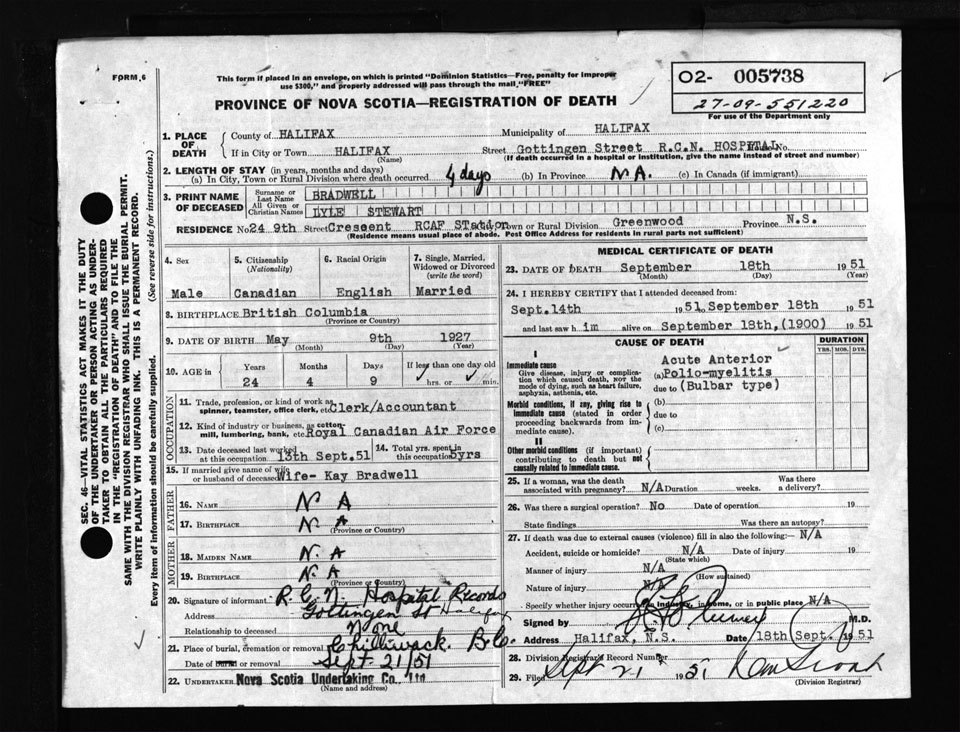 FORM 6
This form if placed in an envelope, on which is printed "Dominion Statistics—Free, penalty for improper
use $300," and properly addressed will pass through the mail, "FREE"
PROVINCE OF NOVA SCOTIA—REGISTRATION OF DEATH
O2- 005738
27-09-551220
For use of the Department only
1. PLACE OF DEATH
County of HALIFAX Municipality of HALIFAX
If in City or Town HALIFAX Street Gottingen Street R.C.N. HOSPITAL No.
(Name) (If death occurred in a hospital or institution, give the name instead of street and number)
2. LENGTH OF STAY (in years, months and days)
(a) In City, Town or Rural Division where death occurred 4 days (b) In Province N.A. (c) In Canada (if immigrant)
3. PRINT NAME OF DECEASED
Surname or Last Name BRADWELL
All Given or Christian Names LYLE STEWART
RESIDENCE No 24 9th Street Crescent RCAF STation Town or Rural Division Greenwood Province N.S.
(Residence means usual place of abode. Post Office Address for residents in rural parts not sufficient)
4. Sex 5. Citizenship (Nationality) 6. Racial Origin 7. Single, Married, Widowed or Divorced (write the word)
Male Canadian English Married
8. BIRTHPLACE British Columbia
(Province or Country)
9. DATE OF BIRTH May 9th 1927
(Month) (Day) (Year)
10. AGE in Years Months Days If less than one day old
24 4 9 hrs. or min.
OCCUPATION
11. Trade, profession, or kind of work as
spinner, teamster, office clerk, etc Clerk/Accountant
12. Kind of industry or business, as cotton-
mill, lumbering, bank, etc. Royal Canadian Air Force
13. Date deceased last worked
at this occupation 13th Sept.51
14. Total yrs. spent in
this occupation 5yrs
15. If married give name of wife
or husband of deceased Wife- Kay Bradwell
FATHER
16. NAME N A
17. BIRTHPLACE N. A
(Province or Country)
MOTHER
18. MAIDEN NAME N. A
19. BIRTHPLACE N. A
(Province or Country)
20. Signature of informant R.C.N. Hospital Records
Address Gottingen St Halifax
Relationship to deceased None
21. Place of burial, cremation or removal Chilliwack. B.C.
Date of burial or removal Sept 21/51
22. UNDERTAKER Nova Scotia Undertaking Co. Ltd
(Name and address)
MEDICAL CERTIFICATE OF DEATH
23. DATE OF DEATH September 18th 1951
(Month) (Day) (Year)
24. I HEREBY CERTIFY that I attended deceased from:
Sept.14th 1951 to September 18th 1951
and last saw h im alive on September 18th,(1900) 1951
CAUSE OF DEATH DURATION
YRS. MOS. DYS.
I
Immediate cause
Give disease, injury or complica-
tion which caused death, not the
mode of dying, such as heart failure,
asphyxia, asthenia, etc.
Acute Anterior
(a) Polio-myelitis
due to (Bulbar type)
Morbid conditions, if any, giving rise to
immediate cause (stated in order
proceeding backwards from im-
mediate cause).
(b)
due to
(c)
II
Other morbid conditions (if important)
contributing to death but not
causally related to immediate cause.
25. If a woman, was the death
associated with pregnancy? N/A Duration weeks. Was there a delivery?
26. Was there a surgical operation? No Date of operation 19
State findings Was there an autopsy?
27. If death was due to external causes (violence) fill in also the following:— N/A
Accident, suicide or homicide? N/A Date of injury 19
(State which)
Manner of injury N/A
(How sustained)
Nature of injury N/A
Specify whether injury occurred in industry, in home, or in public place N/A
Signed by M.D.
Address Halifax, N.S. Date 18th Sept. 1951
28. Division Registrar's Record Number
29. Filed Sept 21 1951
(Division Registrar)
SEC. 46—VITAL STATISTICS ACT MAKES IT THE DUTY
OF THE UNDERTAKER OR PERSON ACTING AS UNDER-
TAKER TO OBTAIN ALL THE PARTICULARS REQUIRED
IN THE "REGISTRATION OF DEATH" AND TO FILE THE
SAME WITH THE DIVISION REGISTRAR WHO SHALL ISSUE THE BURIAL PERMIT.
WRITE PLAINLY WITH UNFADING INK. THIS IS A PERMANENT RECORD.
Every item of information should be carefully supplied. (See reverse side for instructions.)